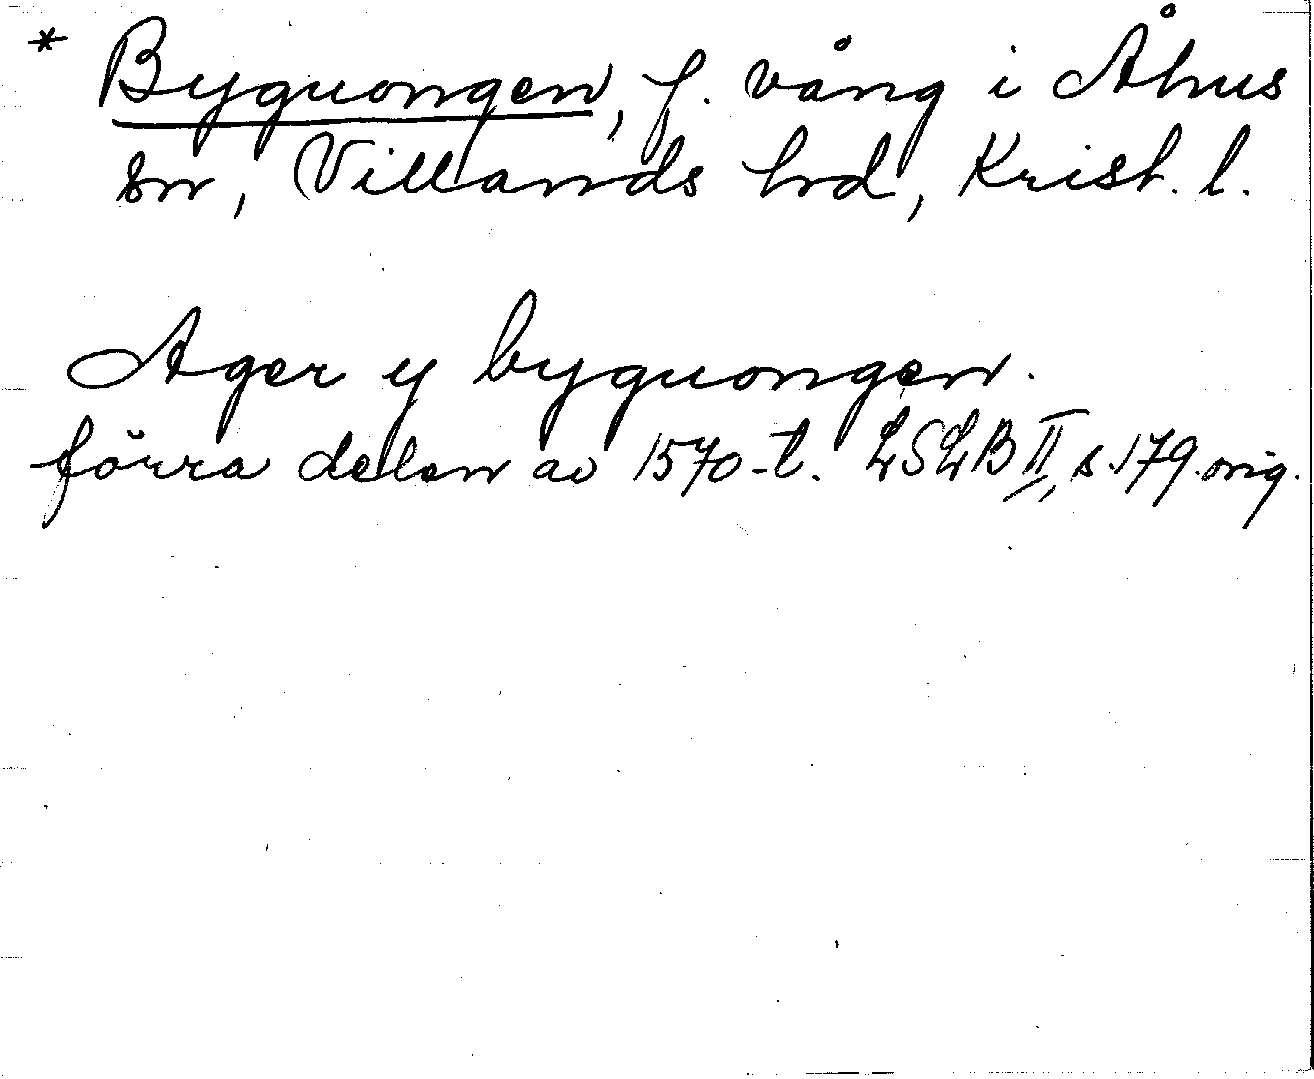 * Byguongen, f. vång i Åhus
sn, Villands hd, Krist. l.
Ager y byguongen.
förra delen av 1570-t. LSLB II, s. 179. orig.